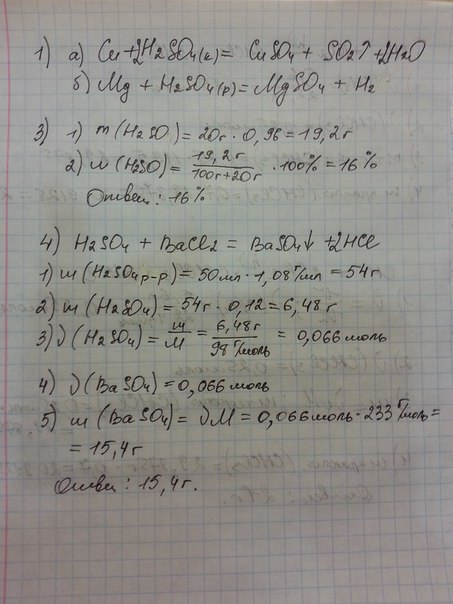 1) а) Cu + 2H2SO4(к) = CuSO4 + SO2↑ + 2H2O
б) Mg + H2SO4(р) = MgSO4 + H2
3) 1) m(H2SO) = 20г · 0,96 = 19,2г
2) w(H2SO) = 19,2г / 100г+20г · 100% = 16%
Ответ: 16%
4) H2SO4 + BaCl2 = BaSO4↓ + 2HCl
1) m(H2SO4 р-р) = 50мл · 1,08г/мл = 54г
2) m(H2SO4) = 54г · 0,12 = 6,48г
3) ν(H2SO4) = m/M = 6,48г / 98г/моль = 0,066моль
4) ν(BaSO4) = 0,066моль
5) m(BaSO4) = νM = 0,066моль · 233г/моль =
= 15,4г
Ответ: 15,4г.